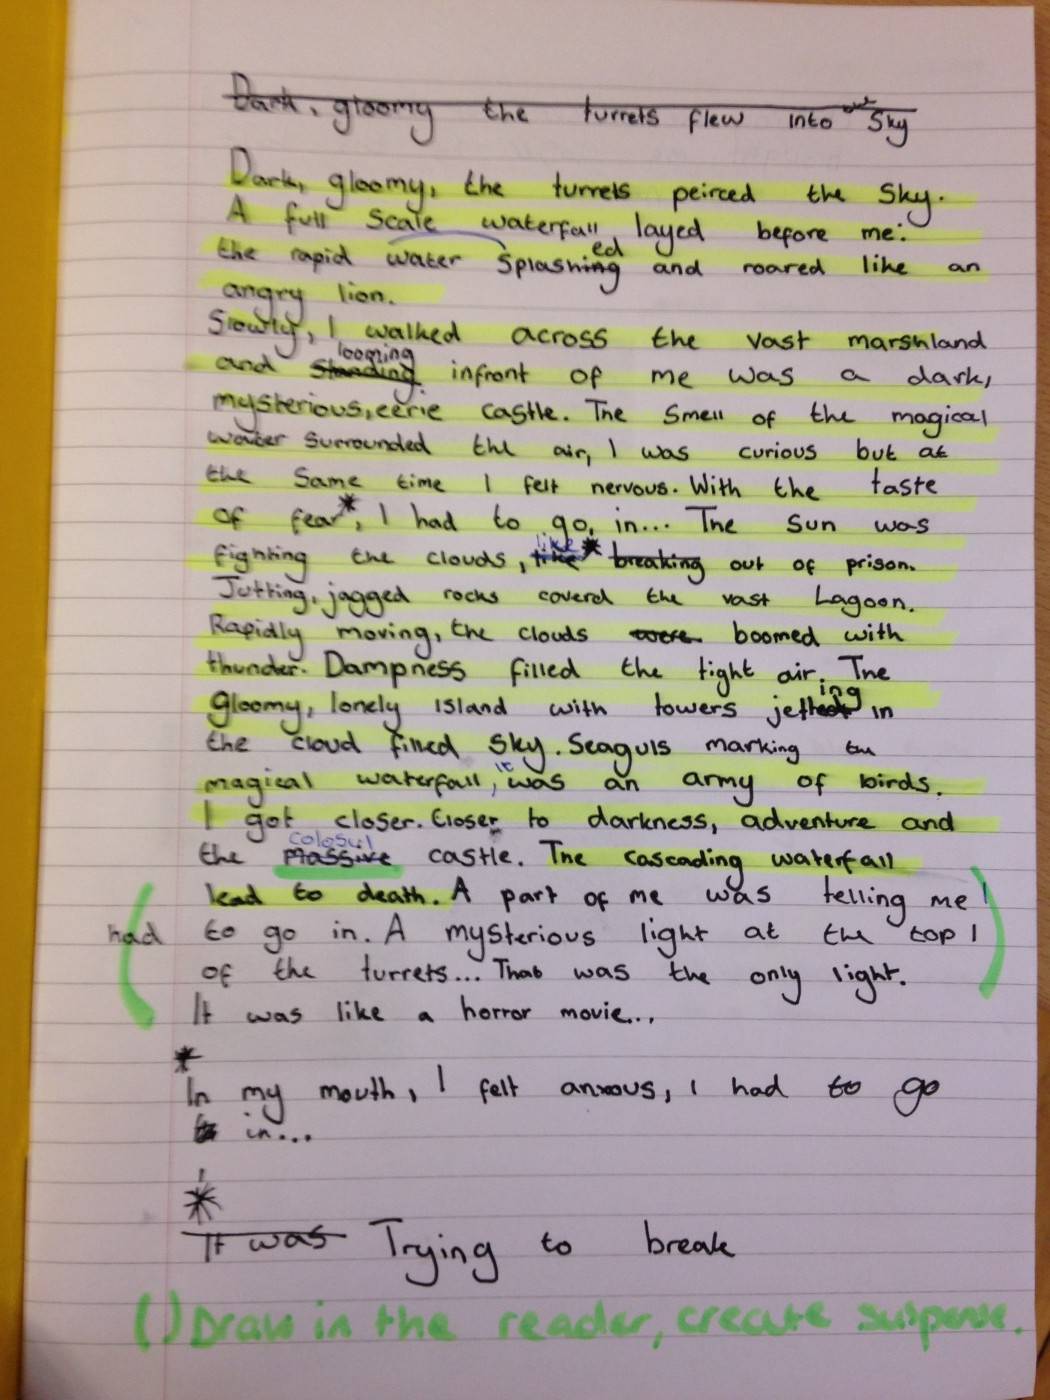 Dark, gloomy the turrets flew into our Sky
Dark, gloomy, the turrets peirced the Sky.
A full Scale waterfall layed before me:
ed
the rapid water Splashing and roared like an
angry lion.
Slowly, I walked across the vast marshland
looming
and Standing infront of me was a dark,
mysterious, eerie castle. The Smell of the magical
water surrounded the air, I was curious but at
the Same time I felt nervous. With the taste
of fear*, I had to go in... The Sun was
like
fighting the clouds, like * breaking out of prison.
Jutting, jagged rocks coverd the vast Lagoon.
Rapidly moving, the clouds were boomed with
thunder. Dampness filled the tight air. The
ing
gloomy, lonely island with towers jetted in
the cloud filled Sky. Seaguls marking the
it
magical waterfall, was an army of birds.
I got closer. Closer to darkness, adventure and
colosul
the Massive castle. The cascading waterfall
lead to death. A part of me was telling me
had to go in. A mysterious light at the top
of the turrets... That was the only light.
It was like a horror movie...
*
In my mouth, I felt anxous, I had to go
in...
*
It was Trying to break
() Draw in the reader, create suspense.